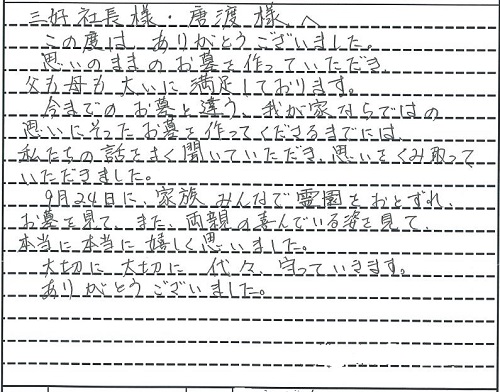 三好社長様・唐渡様へ
この度は ありがとうございました。
思いのままのお墓を作っていただき、
父も母も大いに満足しております。
今までのお墓と違う、我が家ならではの
思いにそったお墓を作ってくださるまでには、
私たちの話をよく聞いていただき、思いをくみ取って
いただきました。
9月24日に、家族みんなで霊園をおとずれ、
お墓を見て、また、両親の喜んでいる姿を見て、
本当に本当に嬉しく思いました。
大切に大切に 代々、守っていきます。
ありがとうございました。